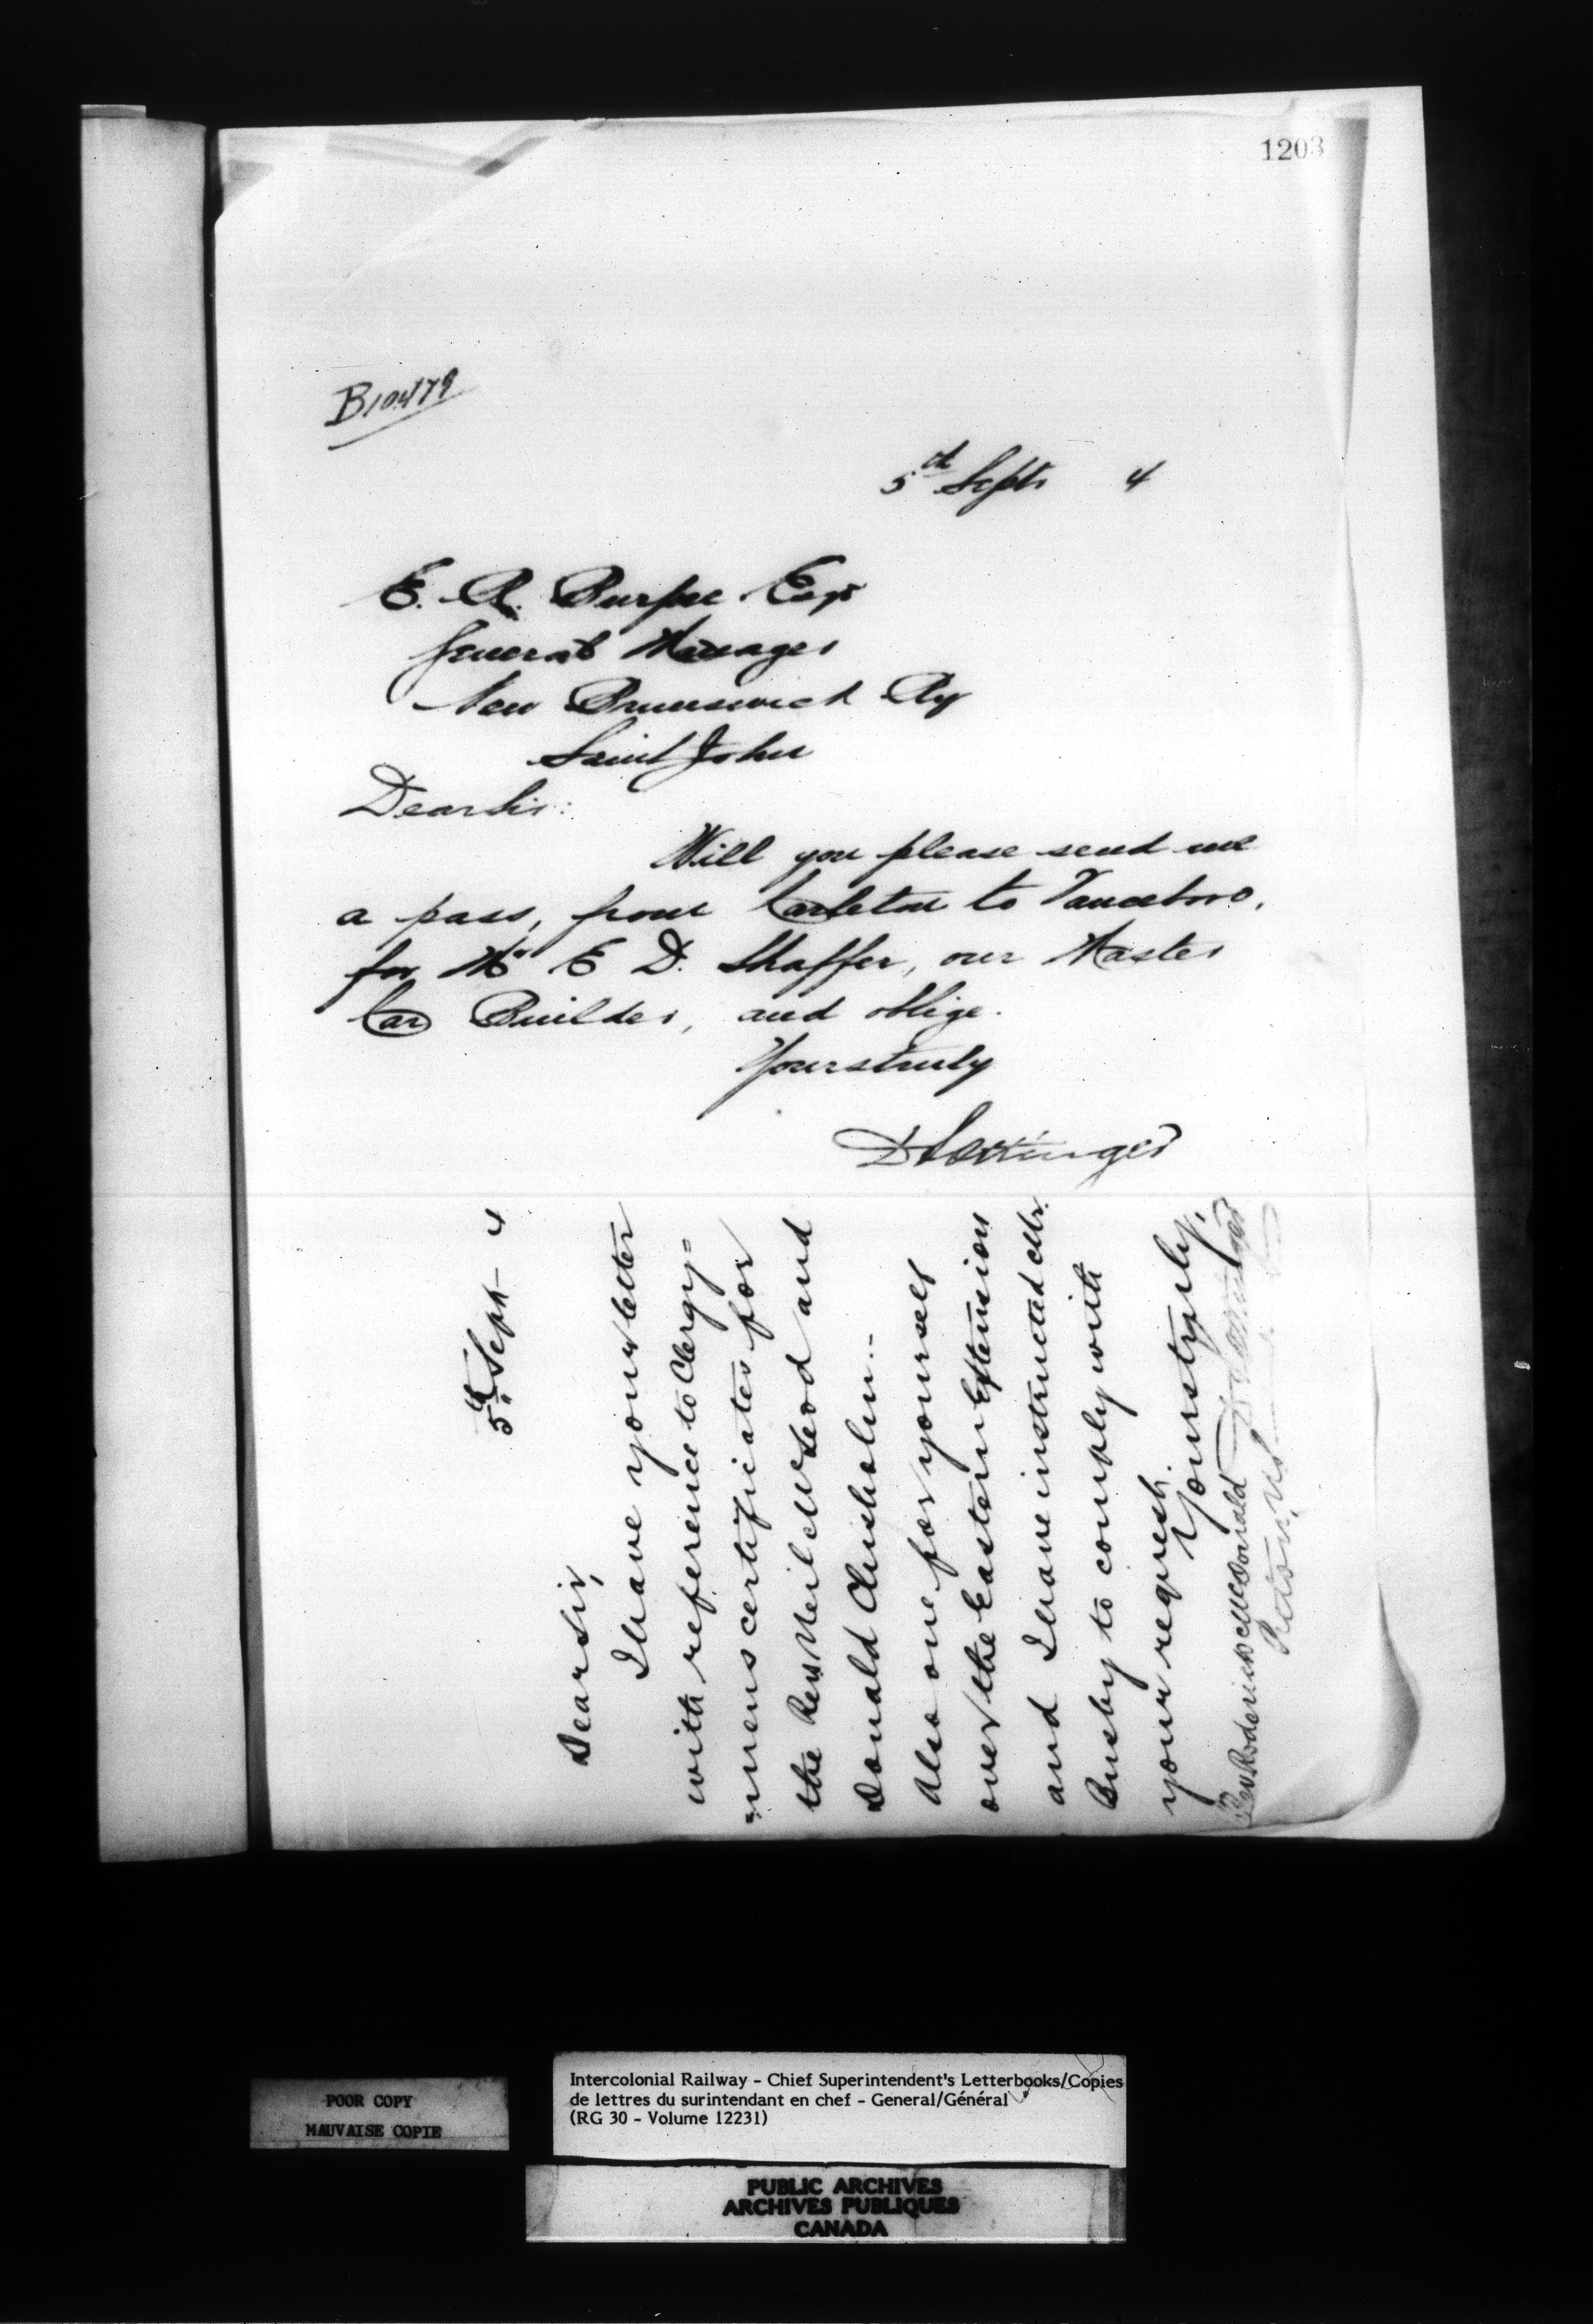 1203
B10479
5th Sept. 4
E. R. Burpee Esqr
General Manager
New Brunswick Ry
Saint John
Dear Sir:
Will you please send me
a pass, from Carleton to Vanceboro,
for Mr E D. Shaffer, our Master
Car Builder, and oblige.
Yours truly
D Pottinger
5th Sept- 4
Dear Sir,
I have your letter
with reference to Clergy=
=mens certificates for
the Revs Neil McLeod and
Donald Chisholm.-
Also one for yourself
over the Eastern Extension
and I have instructed Mr.
Busby to comply with
your request.
Yours truly,
D Pottinger
Rev Roderick McDonald
Pictou, NS
POOR COPY
MAUVAISE COPIE
Intercolonial Railway - Chief Superintendent's Letterbooks/Copies
de lettres du surintendant en chef - General/Général
(RG 30 - Volume 12231)
PUBLIC ARCHIVES
ARCHIVES PUBLIQUES
CANADA